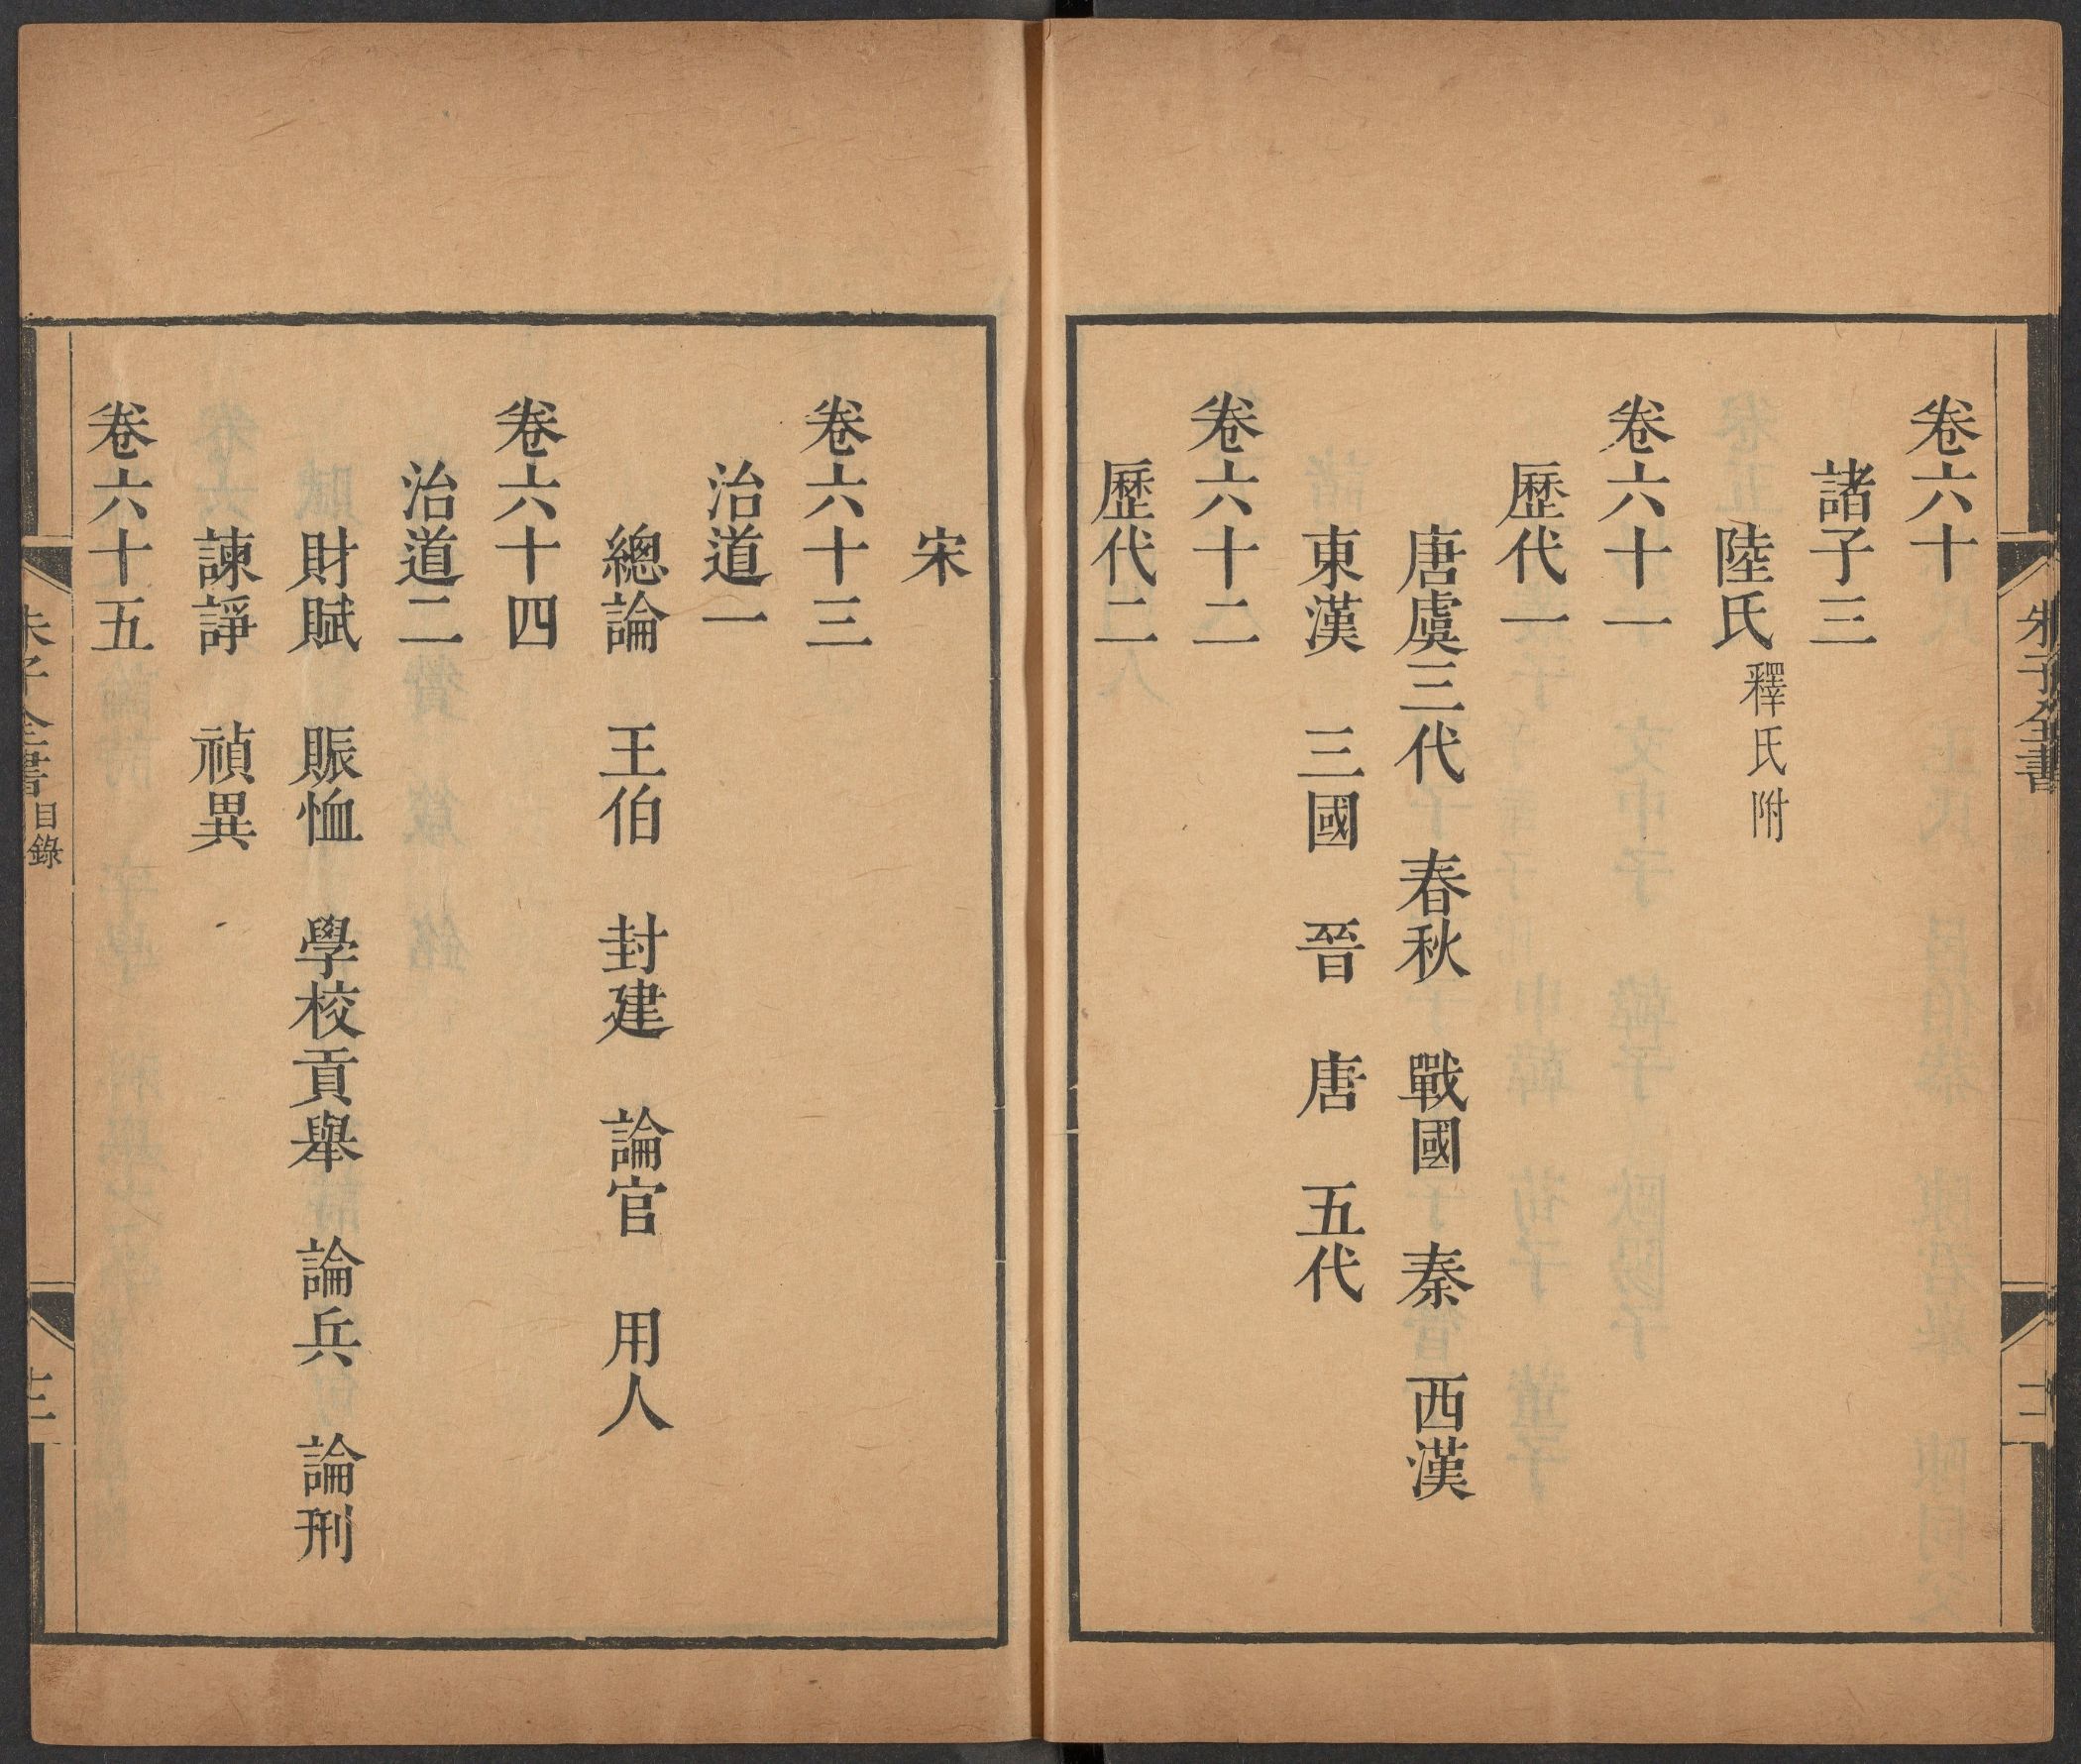 卷六十
諸子三
陸氏 釋氏附
卷六十一
歷代一
唐虞三代 春秋 戰國 秦 西漢
東漢 三國 晉 唐 五代
卷六十二
歷代二
朱子全書
宋
卷六十三
治道一
總論 王伯 封建 論官 用人
卷六十四
治道二
財賦 賑恤 學校貢舉 論兵 論刑
諫諍 禎異
卷六十五
朱子全書 目錄